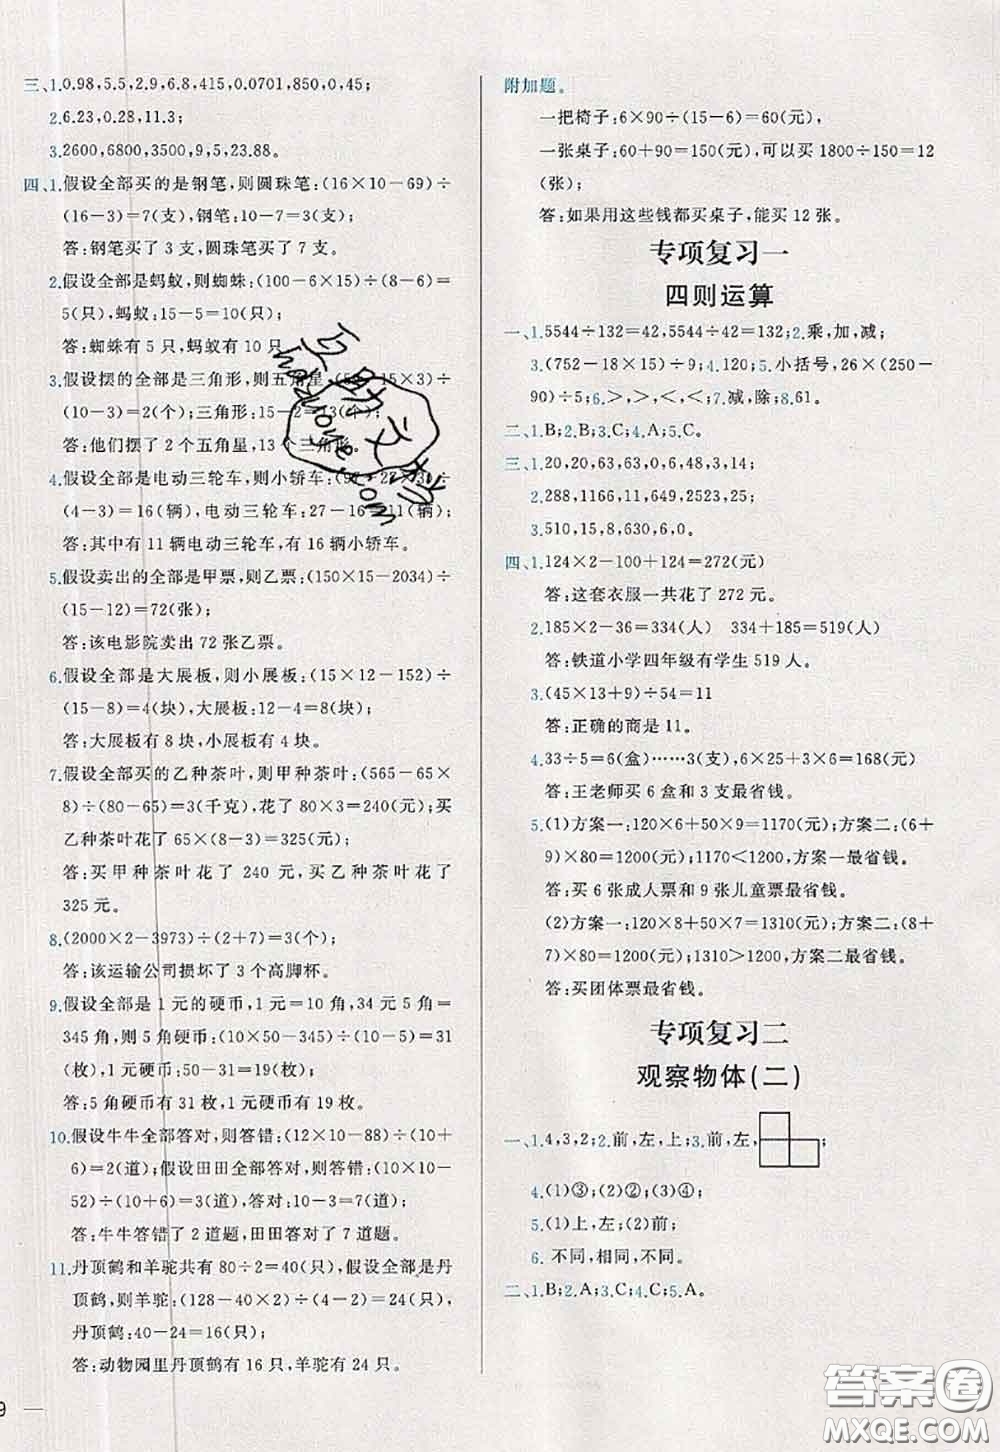 三、1.0.98,5.5,2.9,6.8,415,0.0701,850,0,45;
2.6.23,0.28,11.3;
3.2600,6800,3500,9,5,23.88。
四、1.假设全部买的是钢笔,则圆珠笔:(16×10－69)÷
(16－3)=7(支),钢笔:10－7=3(支);
答:钢笔买了 3 支,圆珠笔买了 7 支。
2.假设全部是蚂蚁,则蜘蛛:(100－6×15)÷(8－6)=
5(只),蚂蚁:15－5=10(只);
答:蜘蛛有 5 只,蚂蚁有 10 只
3.假设摆的全部是三角形,则五角星:(5 －15×3)÷
(10－3)=2(个);三角形:15－2=13(个);
答:他们摆了 2 个五角星,13 个三角形。
4.假设全部是电动三轮车,则小轿车:(97－27×3)÷
(4－3)=16(辆),电动三轮车:27－16=11(辆);
答:其中有 11 辆电动三轮车,有 16 辆小轿车。
5.假设卖出的全部是甲票,则乙票:(150×15－2034)÷
(15－12)=72(张);
答:该电影院卖出 72 张乙票。
6.假设全部是大展板,则小展板:(15×12－152)÷
(15－8)=4(块),大展板:12－4=8(块);
答:大展板有 8 块,小展板有 4 块。
7.假设全部买的乙种茶叶,则甲种茶叶:(565－65×
8)÷(80－65)=3(千克),花了 80×3=240(元);买
乙种茶叶花了 65×(8－3)=325(元);
答:买甲种茶叶花了 240 元,买乙种茶叶花了
325 元。
8.(2000×2－3973)÷(2+7)=3(个);
答:该运输公司损坏了 3 个高脚杯。
9.假设全部是 1 元的硬币,1 元=10 角,34 元 5 角=
345 角,则 5 角硬币:(10×50－345)÷(10－5)=31
(枚),1 元硬币:50－31=19(枚);
答:5 角硬币有 31 枚,1 元硬币有 19 枚。
10.假设牛牛全部答对,则答错:(12×10－88)÷(10+
6)=2(道);假设田田全部答对,则答错:(10×10－
52)÷(10+6)=3(道),答对:10－3=7(道);
答:牛牛答错了 2 道题,田田答对了 7 道题。
11.丹顶鹤和羊驼共有 80÷2=40(只),假设全部是丹
顶鹤,则羊驼:(128－40×2)÷(4－2)=24(只),
丹顶鹤:40－24=16(只);
答:动物园里丹顶鹤有 16 只,羊驼有 24 只。
9
附加题。
一把椅子:6×90÷(15－6)=60(元),
一张桌子:60+90=150(元),可以买 1800÷150=12
(张);
答:如果用这些钱都买桌子,能买 12 张。
专项复习一
四则运算
一、1.5544÷132=42,5544÷42=132;2.乘,加,减;
3.(752－18×15)÷9;4.120;5.小括号,26×(250－
90)÷5;6.>,>,<,<;7.减,除;8.61。
二、1.B;2.B;3.C;4.A;5.C。
三、1.20,20,63,63,0,48,3,14;
2.288,1166,11,649,2523,16;
3.510,15,8,630,6,0。
四、1.124×2－100+124=272(元)
答:这套衣服一共花了 272 元。
2.185×2－36=334(人) 334+185=519(人)
答:铁道小学四年级有学生 519 人。
3.(45×13+9)÷54=11
答:正确的商是 11。
4.33÷5=6(盒)……3(支),6×25+3×6=168(元)
答:王老师买 6 盒和 3 支最省钱。
5.(1)方案一:120×6+50×9=1170(元);方案二:(6+
9)×80=1200(元);1170<1200,方案一最省钱。
答:买 6 张成人票和 9 张儿童票最省钱。
(2)方案一:120×8+50×7=1310(元);方案二:(8+
7)×80=1200(元);1310>1200,方案二最省钱。
答:买团体票最省钱。
专项复习二
观察物体(二)
一、1.4,3,2;2.前,左,上;3.前,左, ;
4.(1)③;(2)②;(3)④;
5.(1)上,左;(2)前;
6.不同,相同,不同。
二、1.B;2.A;3.C;4.C;5.A。
答案圈
MXQE.COM